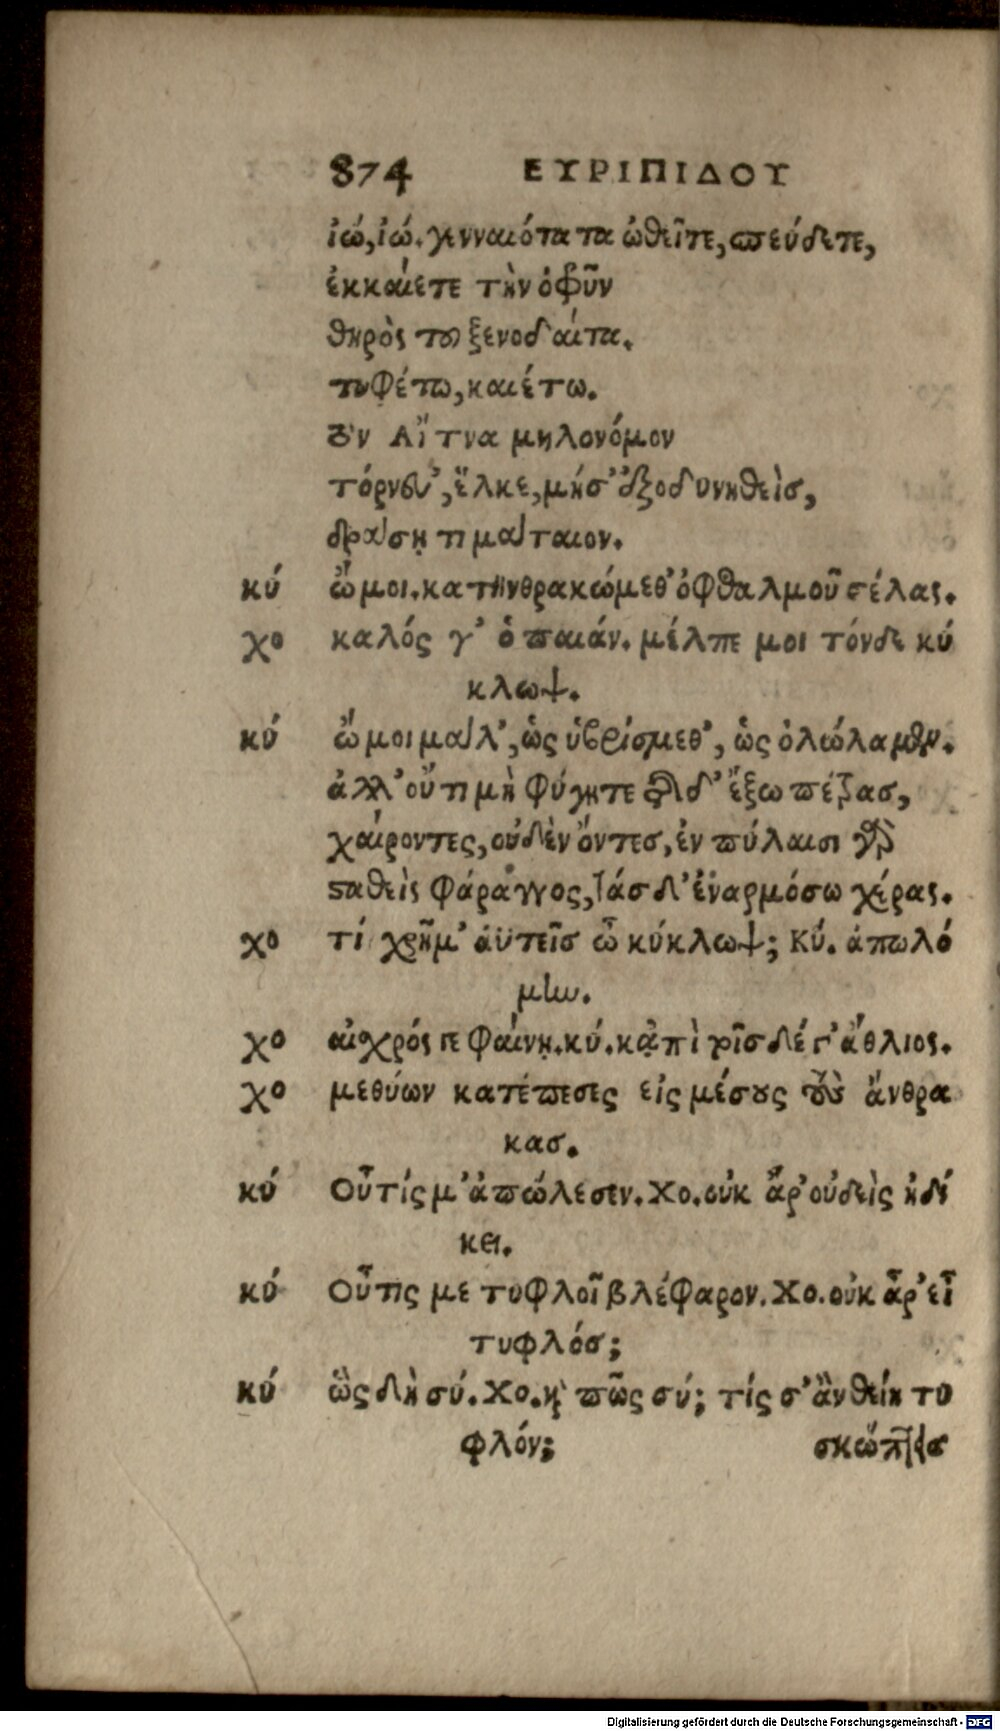 874 ΕΥΡΙΠΙΔΟΥ
ἰώ, ἰώ. γενναιότατα ὠθεῖτε, σπεύδετε,
ἐκκαίετε τὴν ὀφρῦν
θηρὸς τοῦ ξενοδαίτα.
τυφέτω, καιέτω.
τὸν Αἴτνα μηλονόμον
τόρνευ', ἕλκε, μή σ' ἐξοδυνηθεὶς,
δράσῃ τι μάταιον.
κύ ὤμοι. κατηνθρακώμεθ' ὀφθαλμοῦ σέλας.
χο καλός γ' ὁ παιάν. μέλπε μοι τόνδε κύ
κλωψ.
κύ ὤμοι μάλ', ὡς ὑβρίσμεθ', ὡς ὀλώλαμεν.
ἀλλ' οὔτι μὴ φύγητε τῆσδ' ἔξω πέτρας,
χαίροντες, οὐδὲν ὄντες, ἐν πύλαισι γὰρ
σταθεὶς φάραγγος, τάσδ' ἐναρμόσω χέρας.
χο τί χρῆμ' ἀϋτεῖς ὦ κύκλωψ; Κύ. ἀπωλό
μην.
χο αἰσχρός γε φαίνῃ. κύ. κἀπὶ τοῖσδέ γ' ἄθλιος.
χο μεθύων κατέπεσες εἰς μέσους τοὺς ἄνθρα
κας.
κύ Οὖτίς μ' ἀπώλεσεν. Χο. οὐκ ἆρ' οὐδεὶς ἠδί
κει.
κύ Οὖτις με τυφλοῖ βλέφαρον. Χο. οὐκ ἆρ' εἶ
τυφλός;
κύ ὣς δὴ σύ. Χο. καὶ πῶς σύ; τίς σ' ἂν θείη τυ
φλόν; σκώπτεις
Digitalisierung gefördert durch die Deutsche Forschungsgemeinschaft - DFG